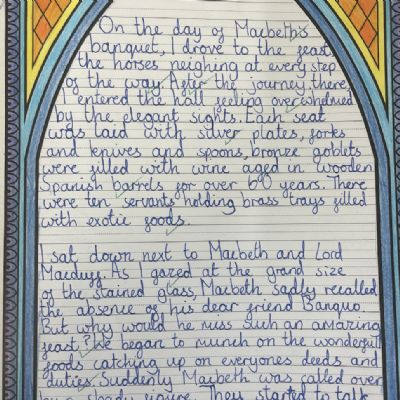 On the day of Macbeth's
banquet, I drove to the feast,
the horses neighing at every step
of the way. After the journey there,
I entered the hall feeling overwhelmed
by the elegant sights. Each seat
was laid with silver plates, forks
and knives and spoons, bronze goblets
were filled with wine aged in wooden
Spanish barrels for over 60 years. There
were ten servants holding brass trays filled
with exotic foods.
I sat down next to Macbeth and Lord
Macduff. As I gazed at the grand size
of the stained glass, Macbeth sadly recalled
the absence of his dear friend Banquo.
But why would he miss such an amazing
feast? We began to munch on the wonderful
foods catching up on everyones deeds and
duties. Suddenly Macbeth was called over
by a shady figure. They started to talk